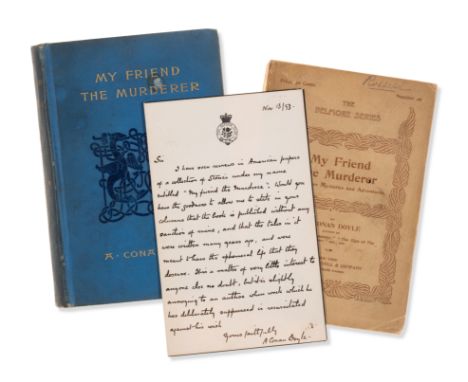 MY FRIEND
THE MURDERER
A · CONA
Nov 13/93.
Sir
I have seen reviews in American papers
of a collection of Stories under my name
entitled "My friend the Murderer". Would you
have the goodness to allow me to state in your
columns that the book is published without any
sanction of mine, and that the tales in it
were written many years ago, and were
meant to have the ephemeral life that they
deserve. It is a matter of very little interest to
anyone else no doubt, but it is slightly
annoying to an author when work which he
has deliberately suppressed is resuscitated
against his wish
Yours faithfully
A Conan Doyle
THE
BELMORE SERIES
My Friend
he Murderer
Mysteries and Adventures
BY
CONAN DOYLE